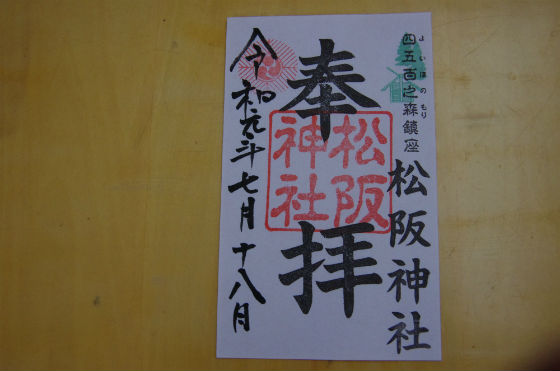 よいほのもり
四五百之森鎮座
松阪神社
奉拝
松阪
神社
令和元年七月十八日